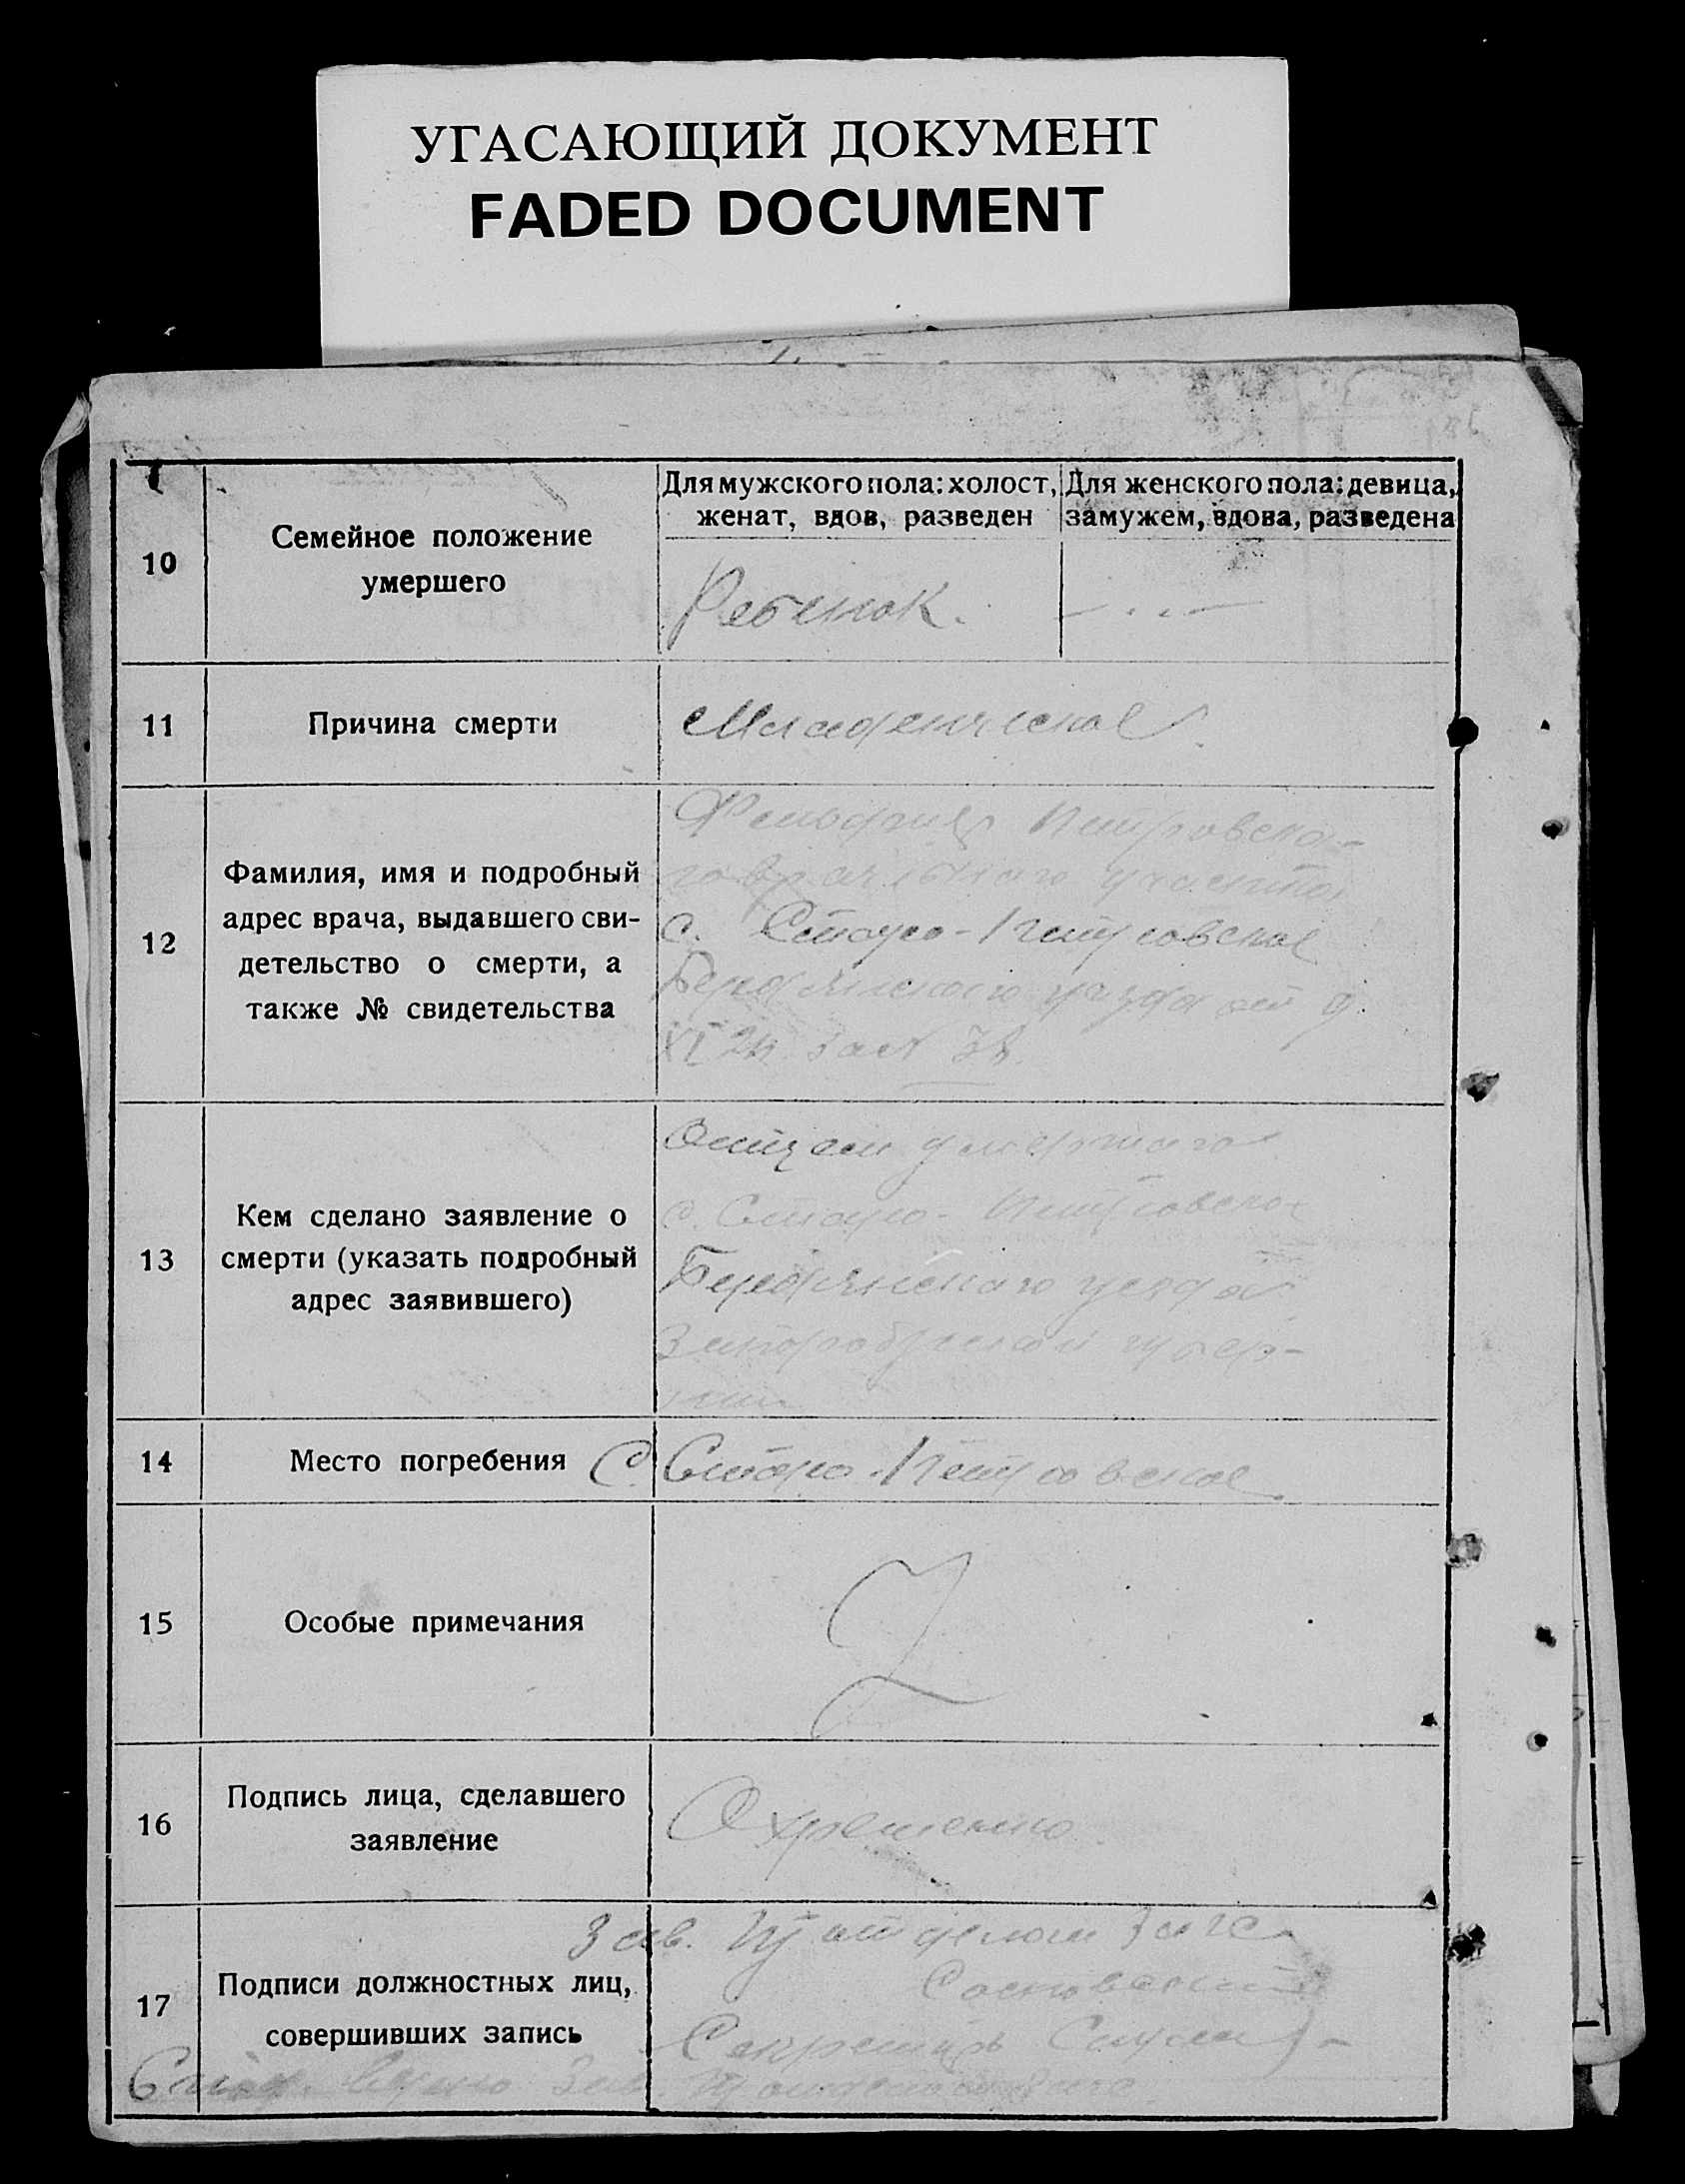 УГАСАЮЩИЙ ДОКУМЕНТ
FADED DOCUMENT
10
Семейное положение
умершего
Для мужского пола: холост,
женат, вдов, разведен
Для женского пола: девица,
замужем, вдова, разведена
Ребенок.
11
Причина смерти
Младенческая
12
Фамилия, имя и подробный
адрес врача, выдавшего сви-
детельство о смерти, а
также № свидетельства
Фельдшер Петровска-
го врачебного участка
с. Старо-Петровское
Бердянского уезда от 9
XI 24
13
Кем сделано заявление о
смерти (указать подробный
адрес заявившего)
Отцом умершего
с. Старо-Петровское
Бердянского уезда
губер-
нии
14
Место погребения
С. Старо-Петровское
15
Особые примечания
16
Подпись лица, сделавшего
заявление
Охременко
17
Подписи должностных лиц,
совершивших запись
Зав. отделом Загс
Секретарь